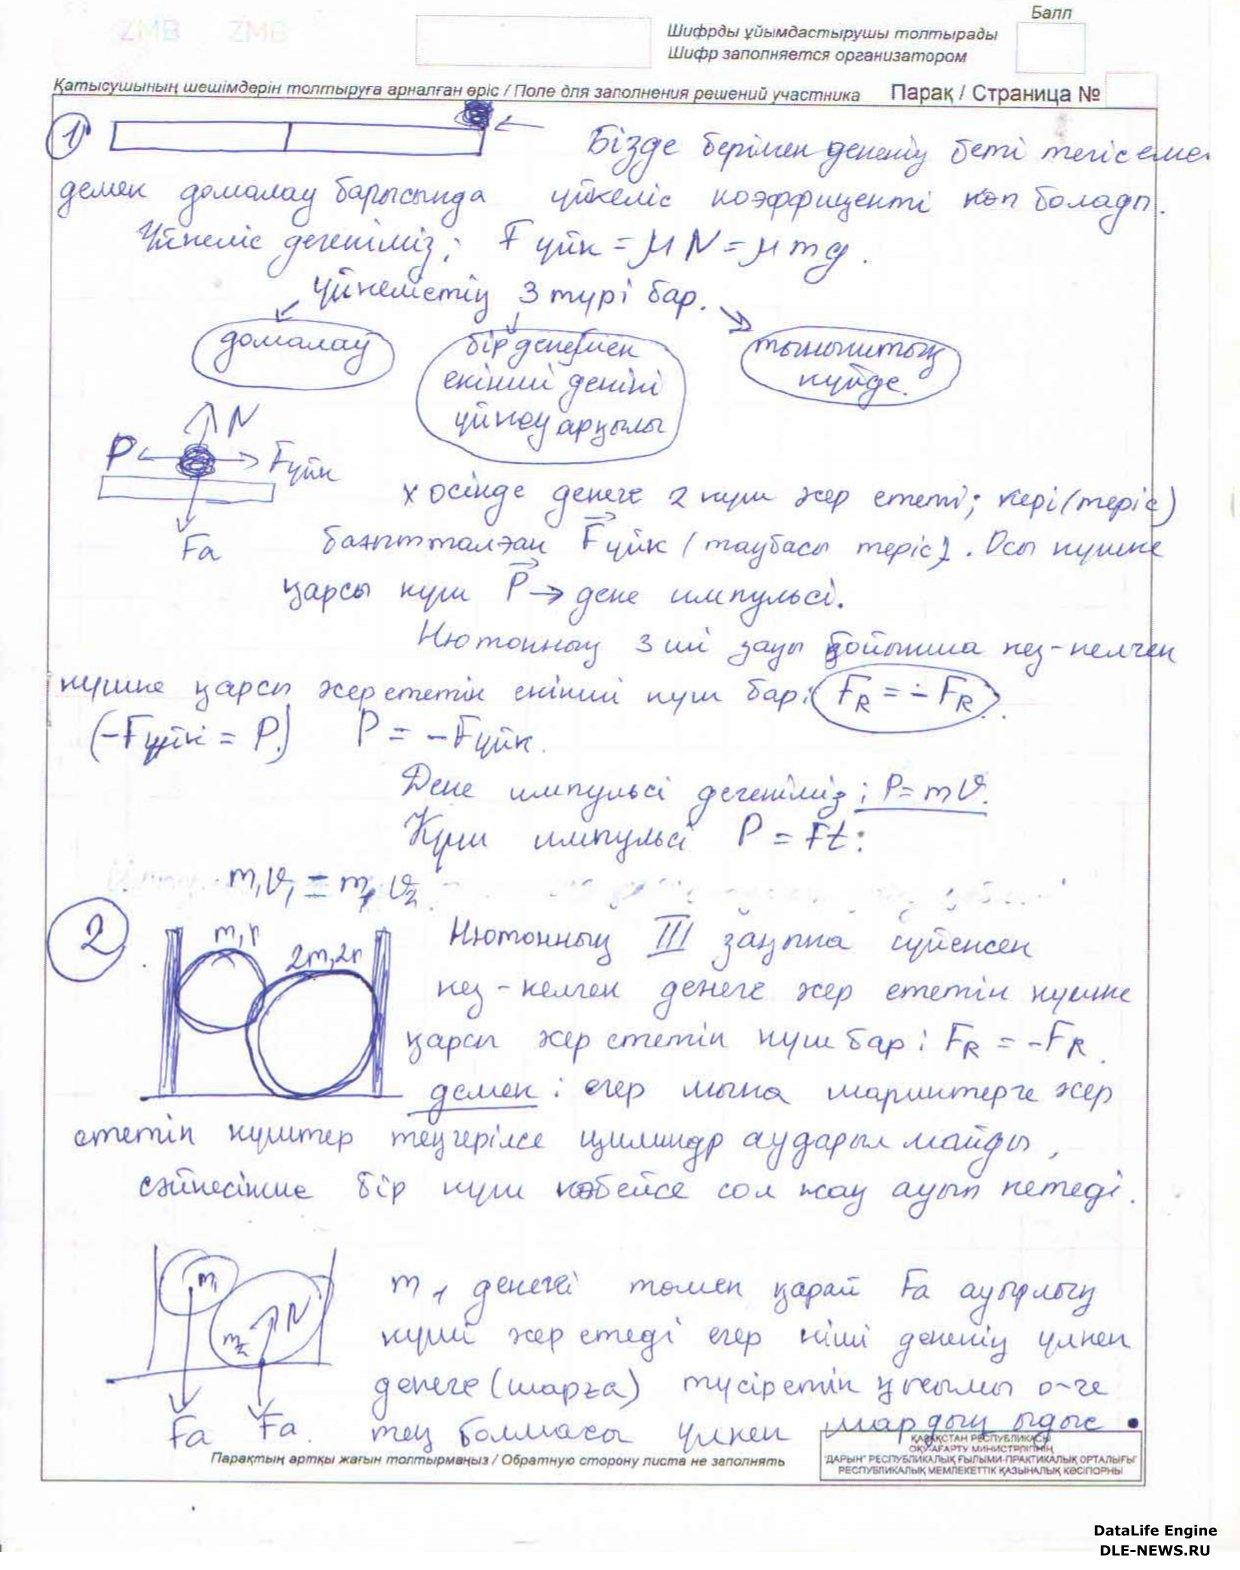 ZMB ZMB
Балл
Шифрды ұйымдастырушы толтырады
Шифр заполняется организатором
Қатысушының шешімдерін толтыруға арналған өріс / Поле для заполнения решений участника Парақ / Страница №
1) Бізде берілген дененің беті тегіс емес
демек домалау барысында үйкеліс коэффиценті көп болады.
Үйкеліс дегеніміз; Fүйк = μN = μmg.
үйкелістің 3 түрі бар.
домалау
бір денемен
екінші дені
үйкеу арқылы
тыныштық
күйде.
N
P Fүйк
Fa
х осінде денеге 2 күш әер ететі; кері (теріс)
бағытталған Fүйк (таңбасы теріс). Осы күшке
қарсы күш P → дене импульсі.
Ньютонның 3 ші заңы бойынша кез-келген
күшке қарсы әер ететін екінші күш бар: FR = -FR.
(-Fүйк = P.) P = -Fүйк.
Дене импульсі дегеніміз; P=mϑ.
Күш импульсі P = Ft:
m1ϑ1 = m ϑ2
2
m,r
2m,2r
Ньютонның III заңына сүйенсек
кез-келген денеге әер ететін күшке
қарсы әер ететін күш бар: FR = -FR.
демек: егер мына шариктерге әер
ететін күштер теңгерілсе цилиндр аударылмайды,
сәйкесінше бір күш көбейсе сол жау ауып кетеді.
m1
m2 N
Fa Fa.
m1 денегі төмен қарай Fa ауырлық
күші әер етеді егер кіші дененің үлкен
денеге (шарға) түсіретін қысымы 0-ге
тең болмасы үлкен шардың ыдыс
Парақтың артқы жағын толтырмаңыз / Обратную сторону листа не заполнять
ҚАЗАҚСТАН РЕСПУБЛИКАСЫ
ОҚУ-АҒАРТУ МИНИСТРЛІГІНІҢ
"ДАРЫН" РЕСПУБЛИКАЛЫҚ ҒЫЛЫМИ-ПРАКТИКАЛЫҚ ОРТАЛЫҒЫ"
РЕСПУБЛИКАЛЫҚ МЕМЛЕКЕТТІК ҚАЗЫНАЛЫҚ КӘСІПОРНЫ
DataLife Engine
DLE-NEWS.RU